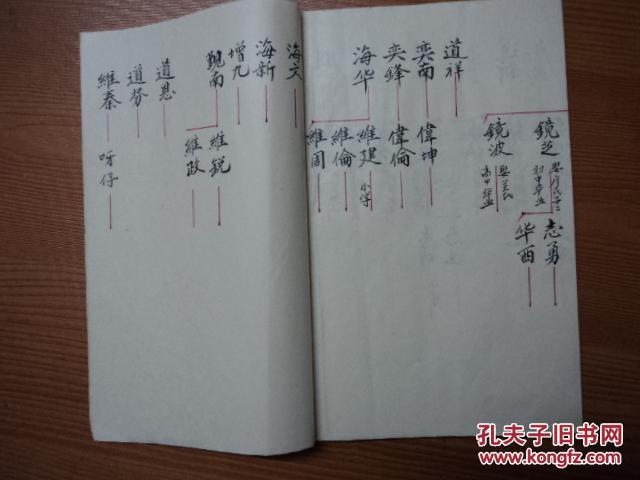 鏡芝
初中毕业
志勇
华西
鏡波
高中毕业
道祥
奕南
偉坤
奕鋒
偉倫
海华
維建
小学
維倫
維周
海文
海新
增九
觀南
維銳
維政
道恩
道芬
維秦
呀仔
孔夫子旧书网
www.kongfz.com